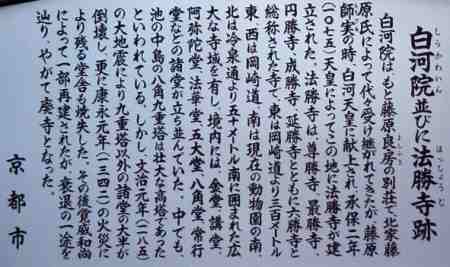 白河院並びに法勝寺跡
しらかわいん
ほっしょうじ
白河院はもと藤原良房の別荘で、出家藤
原氏によって代々受け継がれてきたが、藤原
師実の時、白河天皇に献上され、承保二年
もろざね
(一〇七五)天皇によってこの地に法勝寺が建
立された。法勝寺は、尊勝寺、最勝寺、
円勝寺、成勝寺、延勝寺とともに六勝寺と
総称された寺で、東は岡崎道より三百メートル
東、西は岡崎道、南は現在の動物園の南、
北は冷泉通より五十メートル南に囲まれた広
大な寺域を有し、境内には、金堂、講堂、
阿弥陀堂、法華堂、五大堂、八角堂、常行
堂などの諸堂が立ち並んでいた。中でも、
池の中島の八角九重塔は壮大な高塔であった
といわれている。しかし、文治元年(一一八五)
の大地震により九重塔以外の諸堂の大半が
倒壊し、更に康永元年(一三四二)の火災に
より残る堂舎も焼失した。その後覚威和尚
によって一部再建されたが、衰退の一途を
辿り、やがて廃寺となった。
京都市